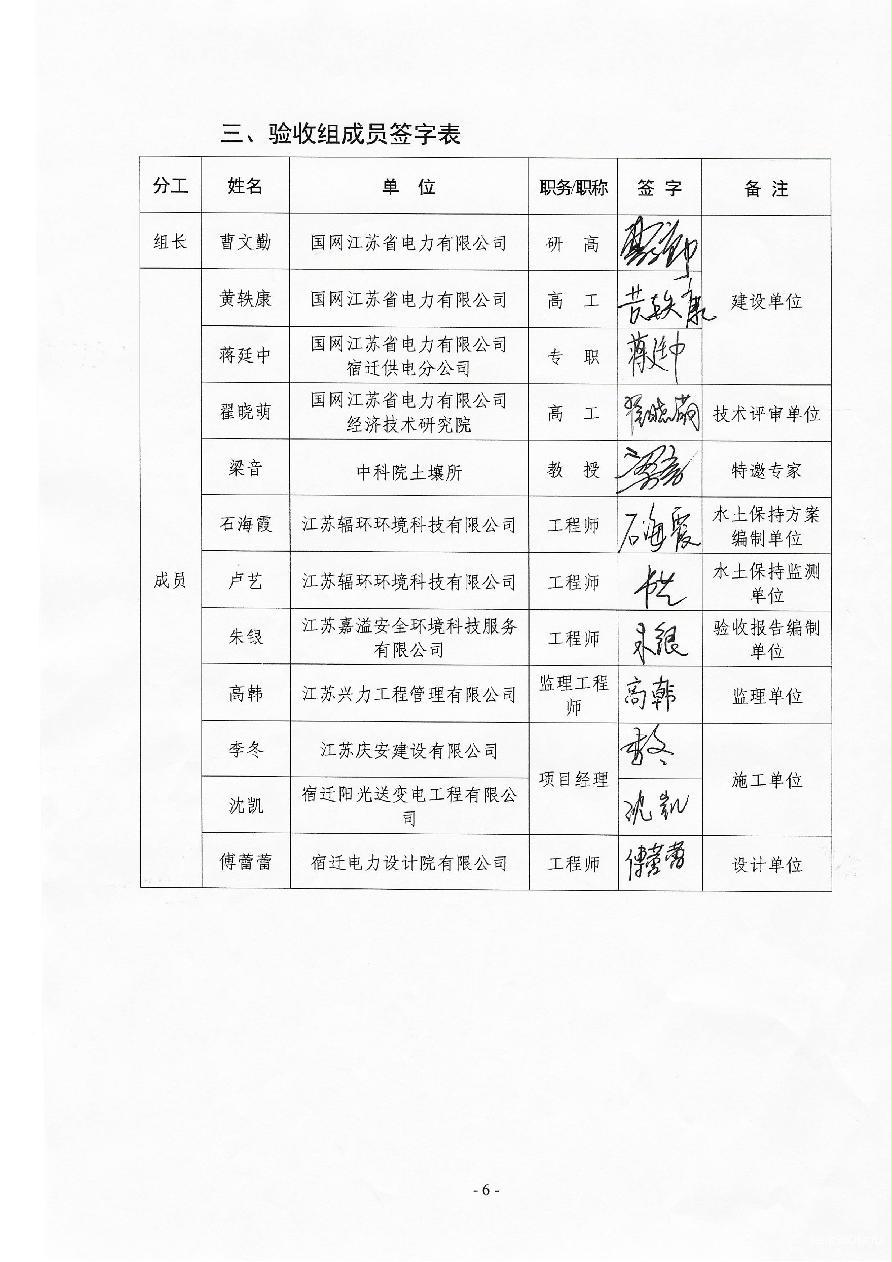 三、验收组成员签字表
分工 姓名 单 位 职务/职称 签 字 备 注
组长 曹文勤 国网江苏省电力有限公司 研 高
黄轶康 国网江苏省电力有限公司 高 工 黄轶康 建设单位
蒋廷中 国网江苏省电力有限公司 专 职 蒋廷中
宿迁供电分公司
翟晓萌 国网江苏省电力有限公司 高 工 翟晓萌 技术评审单位
经济技术研究院
梁音 中科院土壤所 教 授 梁音 特邀专家
石海霞 江苏辐环环境科技有限公司 工程师 石海霞 水土保持方案
编制单位
成员 卢艺 江苏辐环环境科技有限公司 工程师 卢艺 水土保持监测
单位
朱银 江苏嘉溢安全环境科技服务 工程师 朱银 验收报告编制
有限公司 单位
高韩 江苏兴力工程管理有限公司 监理工程 高韩 监理单位
师
李冬 江苏庆安建设有限公司 李冬
项目经理 施工单位
沈凯 宿迁阳光送变电工程有限公 沈凯
司
傅蕾蕾 宿迁电力设计院有限公司 工程师 傅蕾蕾 设计单位
- 6 -